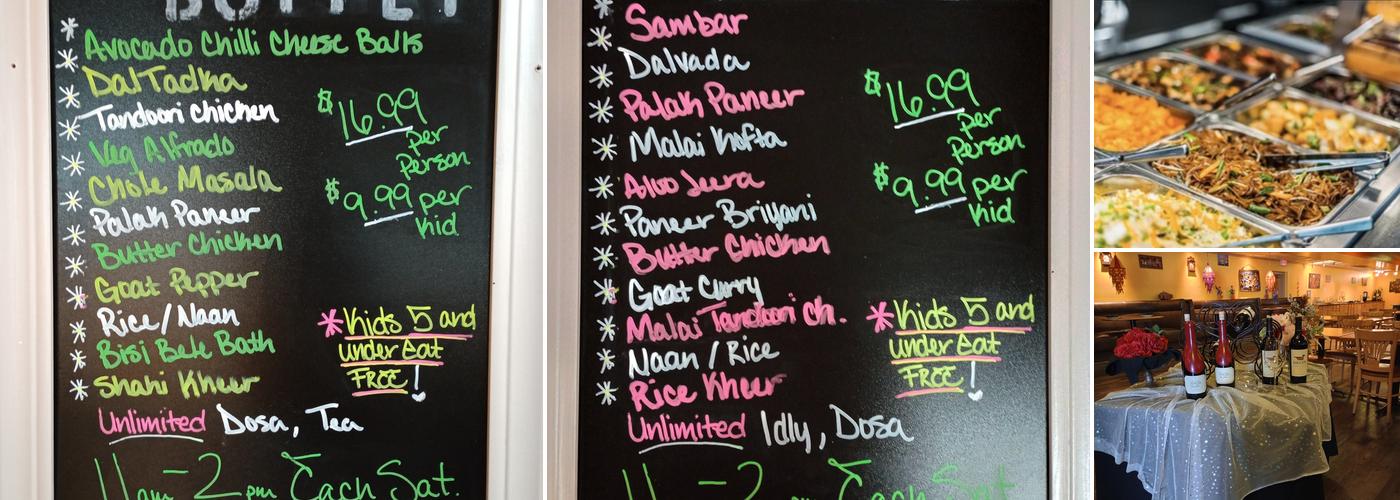 BUFFET
* Avocado Chilli Cheese Balls
* Dal Tadka
* Tandoori Chicken
* Veg Alfrado
* Chole Masala
* Palak Paneer
* Butter Chicken
* Goat Pepper
* Rice/Naan
* Bisi Bele Bath
* Shahi Kheer
Unlimited Dosa, Tea
11am - 2pm Each Sat.
$16.99
per
Person
$9.99 per
Kid
*Kids 5 and
under Eat
FREE!
* Sambar
* Dalvada
* Palak Paneer
* Malai Kofta
* Aloo Jeera
* Paneer Briyani
* Butter Chicken
* Goat Curry
* Malai Tandoori Ch.
* Naan / Rice
* Rice Kheer
Unlimited Idly, Dosa
11am - 2pm Each Sat.
$16.99
per
Person
$9.99 per
Kid
*Kids 5 and
under Eat
FREE!